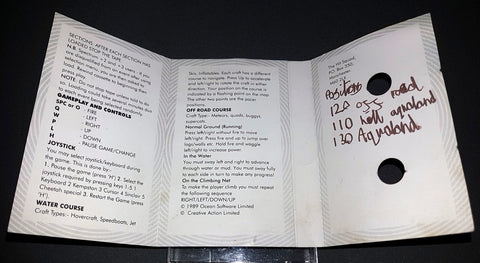 SECTIONS: AFTER EACH SECTION HAS
LOADED STOP THE TAPE.
N.B. Spectrum +2 and +3 users - if you
are disqualified from an event after using
selection menu, you are then asked to
load. Rewind cassette to beginning then
press play.
NOTE: Do not stop tape unless told to do
so. Loading could take several minutes due
to each event being selected minutes due
GAMEPLAY AND CONTROLS
SPC or O - FIRE
Q - LEFT
W - RIGHT
P - UP
L - DOWN
H - PAUSE GAME/CHANGE
JOYSTICK
You may select joystick/keyboard during
the game. This is done by:-
1. Pause the game (press 'H') 2. Select the
joystick required by pressing keys 1-5 1
Keyboard 2 Kempston 3 Cursor 4 Sinclair 5
Cheetah special 3. Restart the Game (press
'H').
WATER COURSE
Craft Types:- Hovercraft, Speedboats, Jet
Skis, Inflatables. Each craft has a different
course to navigate. Press Up to accelerate
and left/right to rotate the craft in either
direction. Your position on the course is
indicated by an arrow on the small map.
The other two points are the pacer
positions.
OFF ROAD COURSE
Craft Type:- Meteors, quads, buggys,
supercats.
Normal Ground (Running)
Press left/right without fire to move
left/right. Press fire and up to jump over
logs/walls etc. Hold fire and waggle
left/right to increase power.
In the Water
You must sway left and right to advance
through water or mud. You must sway fully
to each side in turn to make any progress!
On the Climbing Net
To make the player climb you must repeat
the following sequence:
RIGHT/LEFT/DOWN/UP
© 1989 Ocean Software Limited
© Creative Action Limited
The Hit Squad,
P.O. Box 350,
Manchester
M60
Positions
120 off road
110 Well aqualand
130 Aqualand